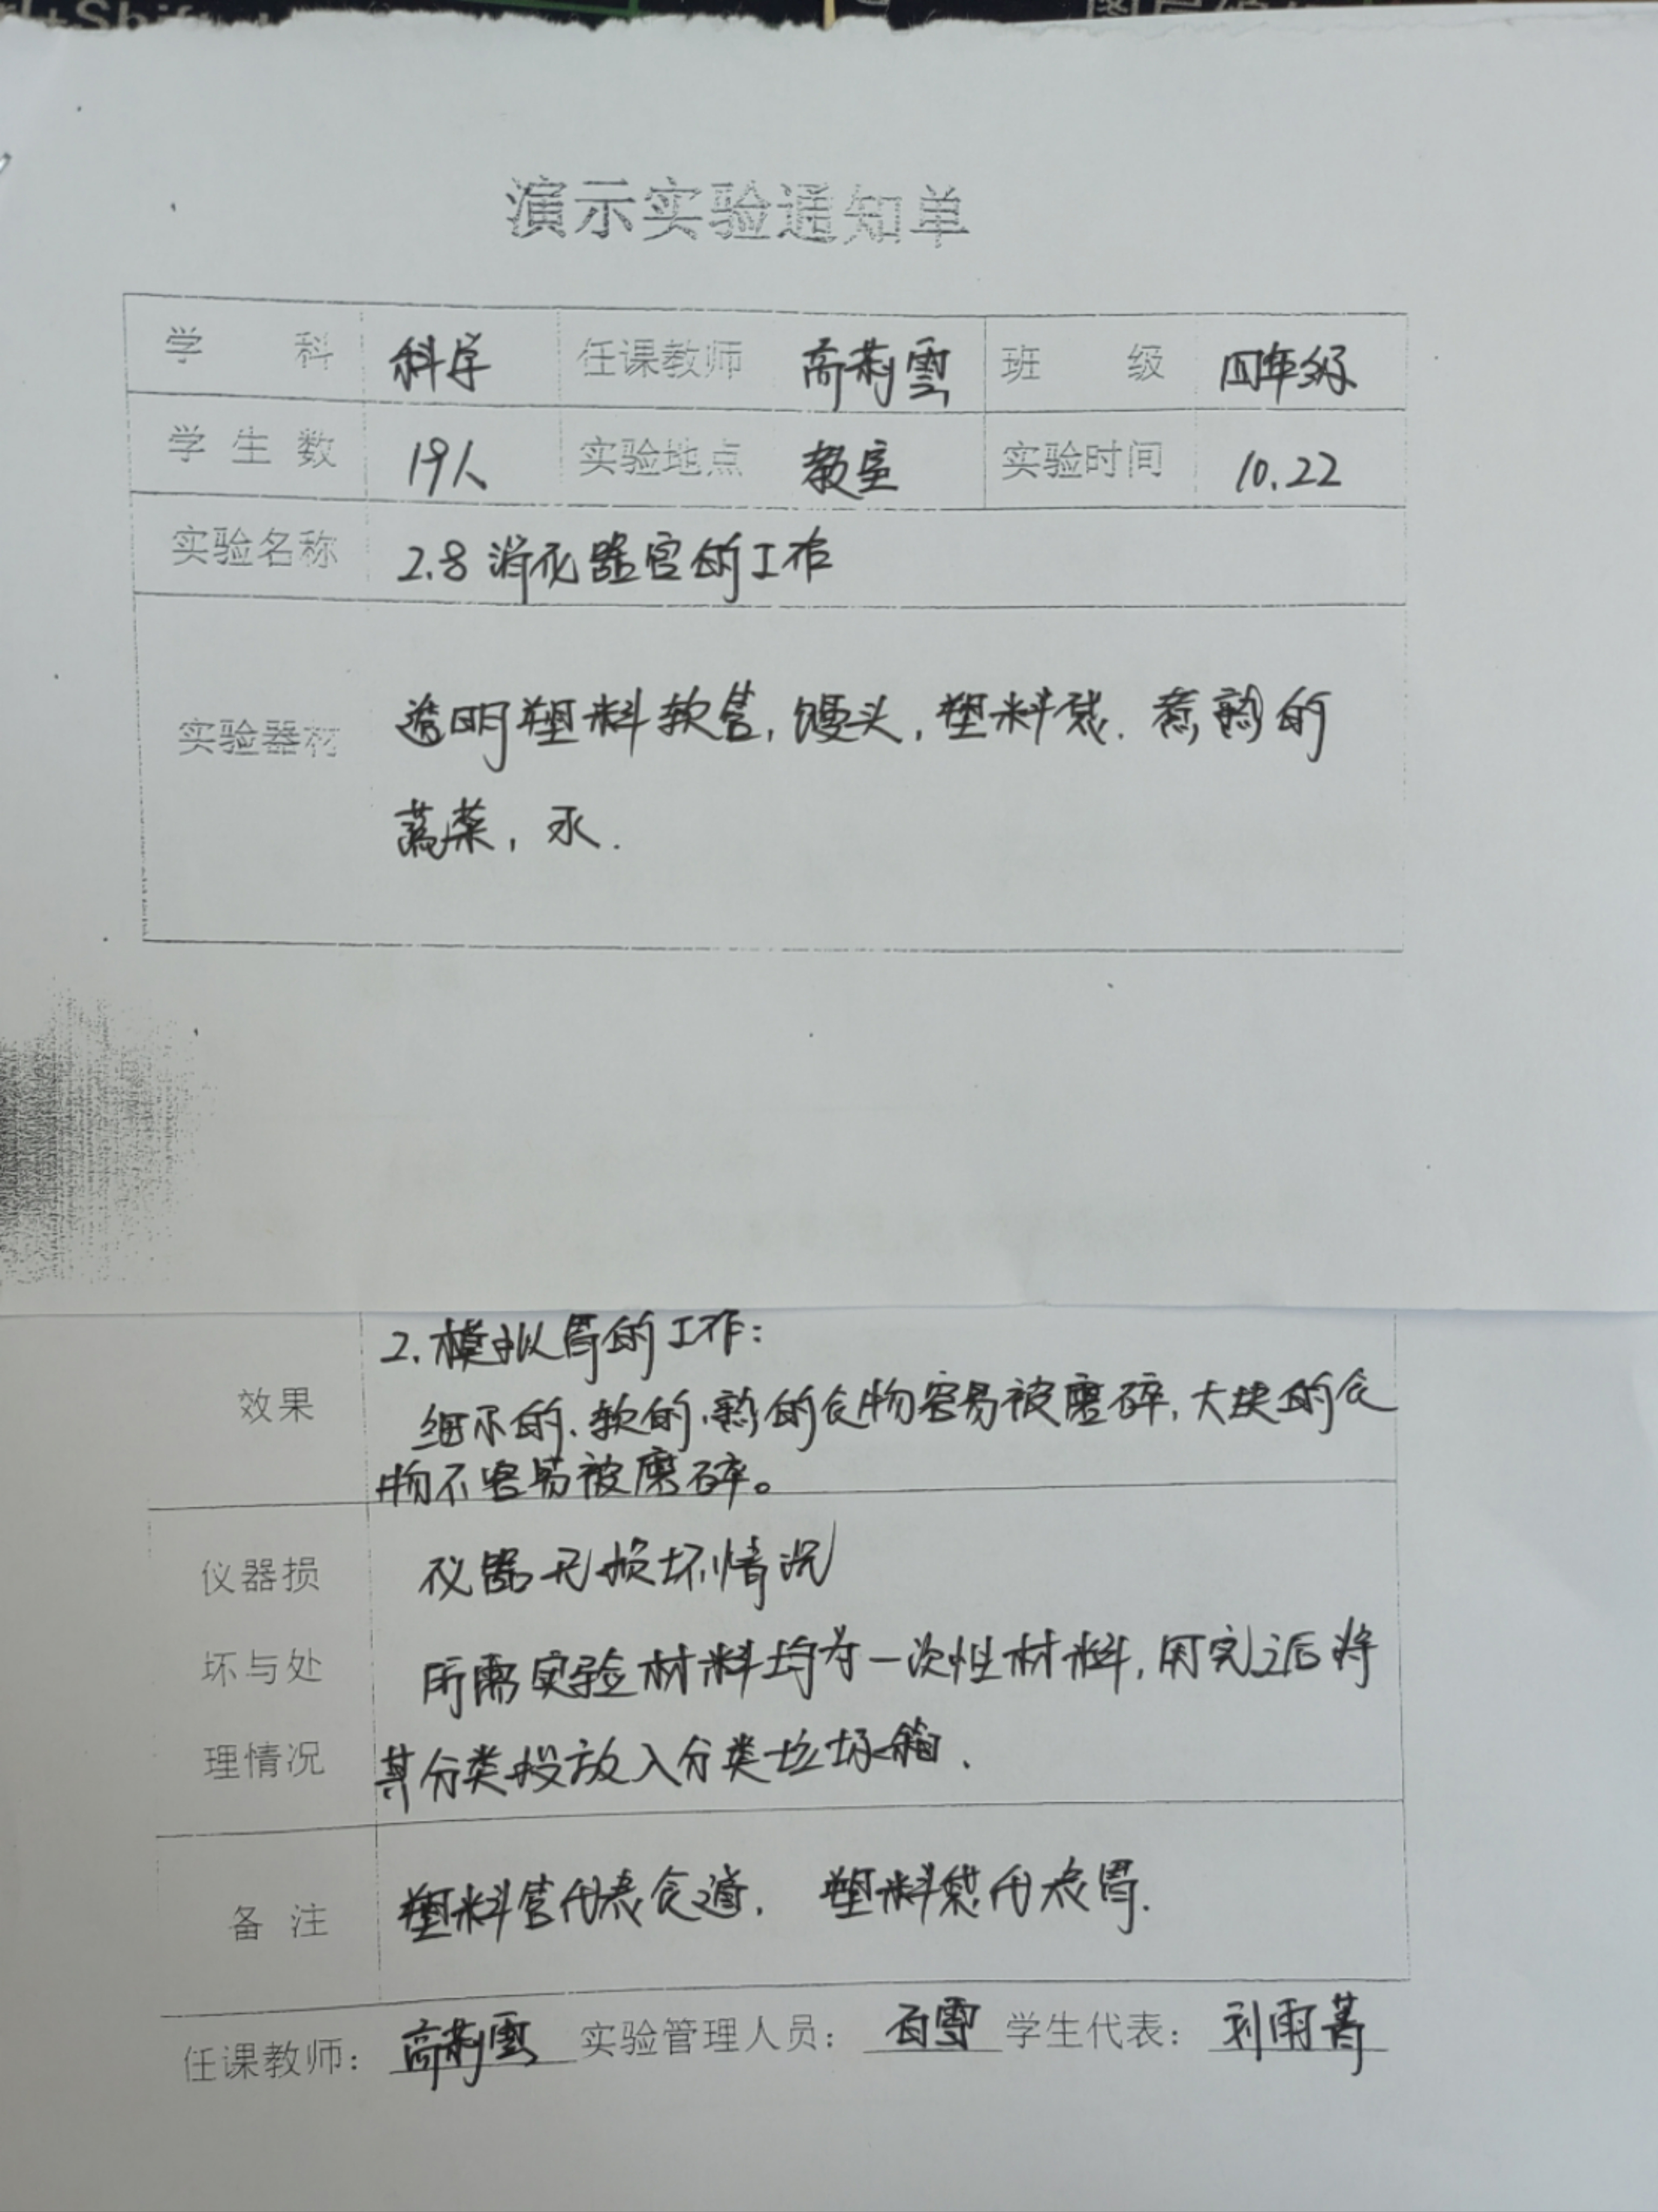 演示实验通知单
学 科 科学 任课教师 高莉雲 班 级 四年级
学生数 19人 实验地点 教室 实验时间 10.22
实验名称 2.8 消化器官的工作
实验器材 透明塑料软管,馒头,塑料袋.煮熟的
蔬菜,水.
2.模拟胃的工作:
效果 细小的、软的、熟的食物容易被磨碎,大块的食
物不容易被磨碎。
仪器损 仪器无损坏情况
坏与处 所需实验材料均为一次性材料,用完之后将
理情况 其分类投放入分类垃圾箱.
备注 塑料管代表食道. 塑料袋代表胃.
任课教师: 高莉雲 实验管理人员: 石雪 学生代表: 刘雨菁